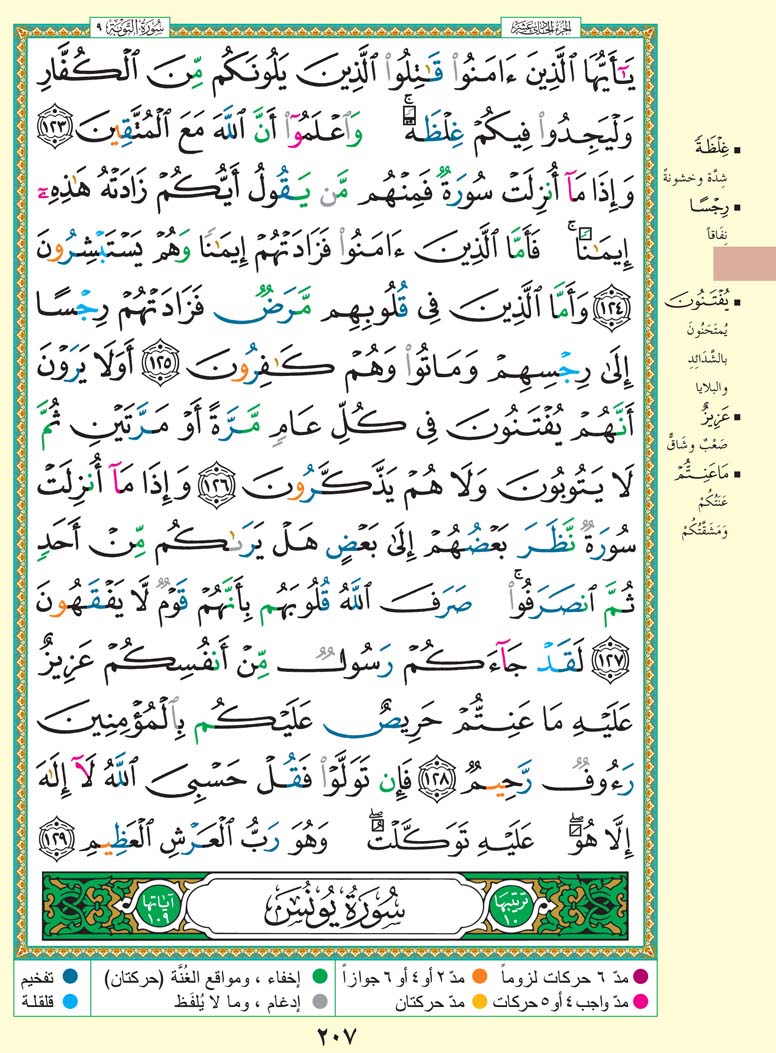 الجزء الحادي عشر
سورة التوبة ٩
يَـٰٓأَيُّهَا ٱلَّذِينَ ءَامَنُوا۟ قَـٰتِلُوا۟ ٱلَّذِينَ يَلُونَكُم مِّنَ ٱلْكُفَّارِ
وَلْيَجِدُوا۟ فِيكُمْ غِلْظَةً ۚ وَٱعْلَمُوٓا۟ أَنَّ ٱللَّهَ مَعَ ٱلْمُتَّقِينَ ١٢٣
وَإِذَا مَآ أُنزِلَتْ سُورَةٌ فَمِنْهُم مَّن يَقُولُ أَيُّكُمْ زَادَتْهُ هَـٰذِهِۦٓ
إِيمَـٰنًا ۚ فَأَمَّا ٱلَّذِينَ ءَامَنُوا۟ فَزَادَتْهُمْ إِيمَـٰنًا وَهُمْ يَسْتَبْشِرُونَ
١٢٤ وَأَمَّا ٱلَّذِينَ فِى قُلُوبِهِم مَّرَضٌ فَزَادَتْهُمْ رِجْسًا
إِلَىٰ رِجْسِهِمْ وَمَاتُوا۟ وَهُمْ كَـٰفِرُونَ ١٢٥ أَوَلَا يَرَوْنَ
أَنَّهُمْ يُفْتَنُونَ فِى كُلِّ عَامٍ مَّرَّةً أَوْ مَرَّتَيْنِ ثُمَّ
لَا يَتُوبُونَ وَلَا هُمْ يَذَّكَّرُونَ ١٢٦ وَإِذَا مَآ أُنزِلَتْ
سُورَةٌ نَّظَرَ بَعْضُهُمْ إِلَىٰ بَعْضٍ هَلْ يَرَىٰكُم مِّنْ أَحَدٍ
ثُمَّ ٱنصَرَفُوا۟ ۚ صَرَفَ ٱللَّهُ قُلُوبَهُم بِأَنَّهُمْ قَوْمٌ لَّا يَفْقَهُونَ
١٢٧ لَقَدْ جَآءَكُمْ رَسُولٌ مِّنْ أَنفُسِكُمْ عَزِيزٌ
عَلَيْهِ مَا عَنِتُّمْ حَرِيصٌ عَلَيْكُم بِٱلْمُؤْمِنِينَ
رَءُوفٌ رَّحِيمٌ ١٢٨ فَإِن تَوَلَّوْا۟ فَقُلْ حَسْبِىَ ٱللَّهُ لَآ إِلَـٰهَ
إِلَّا هُوَ ۖ عَلَيْهِ تَوَكَّلْتُ ۖ وَهُوَ رَبُّ ٱلْعَرْشِ ٱلْعَظِيمِ ١٢٩
ترتيبها ١٠
سُورَةُ يُونُسَ
آياتها ١٠٩
غِلْظَةً
شِدَّة وخشونةً
رِجْسًا
نِفَاقاً
يُفْتَنُونَ
يُمتَحَنُونَ
بالشَّدَائِدِ
والبلايا
عَزِيزٌ
صَعْبٌ وشَاقٌّ
مَا عَنِتُّمْ
عَنَتُكُمْ
وَمَشَقَّتُكُمْ
مدّ ٦ حركات لزوماً
مدّ ٢ أو ٤ أو ٦ جوازاً
إخفاء ، ومواقع الغُنَّة (حركتان)
تفخيم
مدّ واجب ٤ أو ٥ حركات
مدّ حركتان
إدغام ، وما لا يُلفَظ
قلقلة
٢٠٧